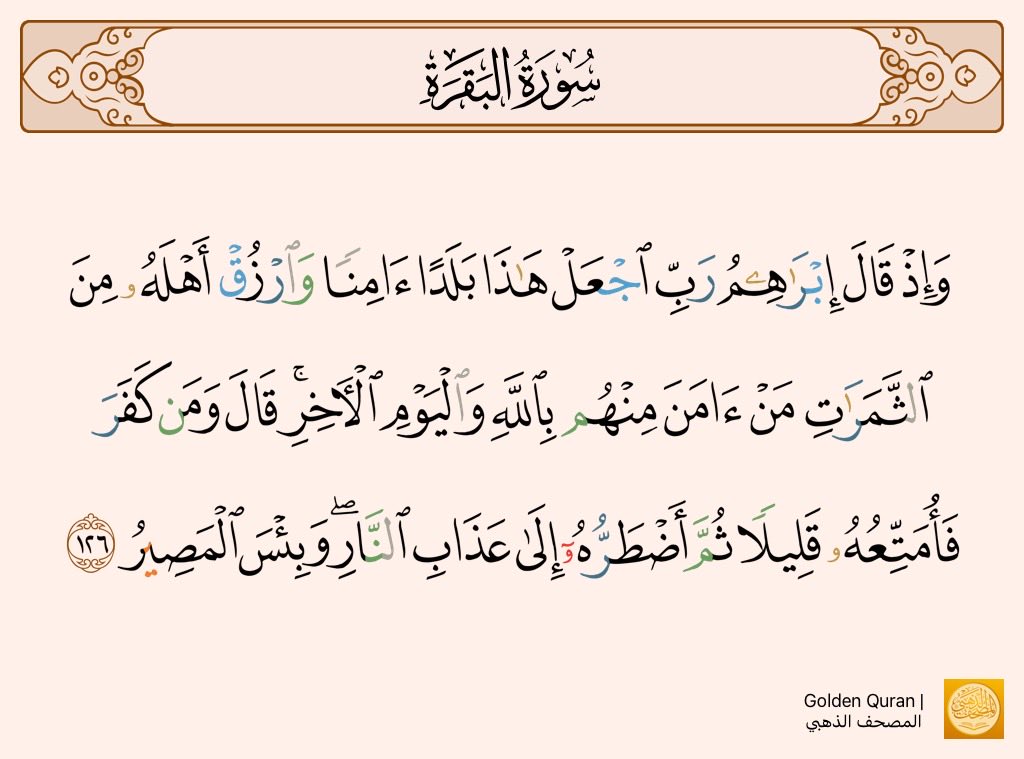 سُورَةُ البَقَرَةِ
وَإِذْ قَالَ إِبْرَٰهِـۧمُ رَبِّ ٱجْعَلْ هَـٰذَا بَلَدًا ءَامِنًا وَٱرْزُقْ أَهْلَهُۥ مِنَ
ٱلثَّمَرَٰتِ مَنْ ءَامَنَ مِنْهُم بِٱللَّهِ وَٱلْيَوْمِ ٱلْـَٔاخِرِ ۚ قَالَ وَمَن كَفَرَ
فَأُمَتِّعُهُۥ قَلِيلًا ثُمَّ أَضْطَرُّهُۥٓ إِلَىٰ عَذَابِ ٱلنَّارِ ۖ وَبِئْسَ ٱلْمَصِيرُ ١٢٦
Golden Quran |
المصحف الذهبي